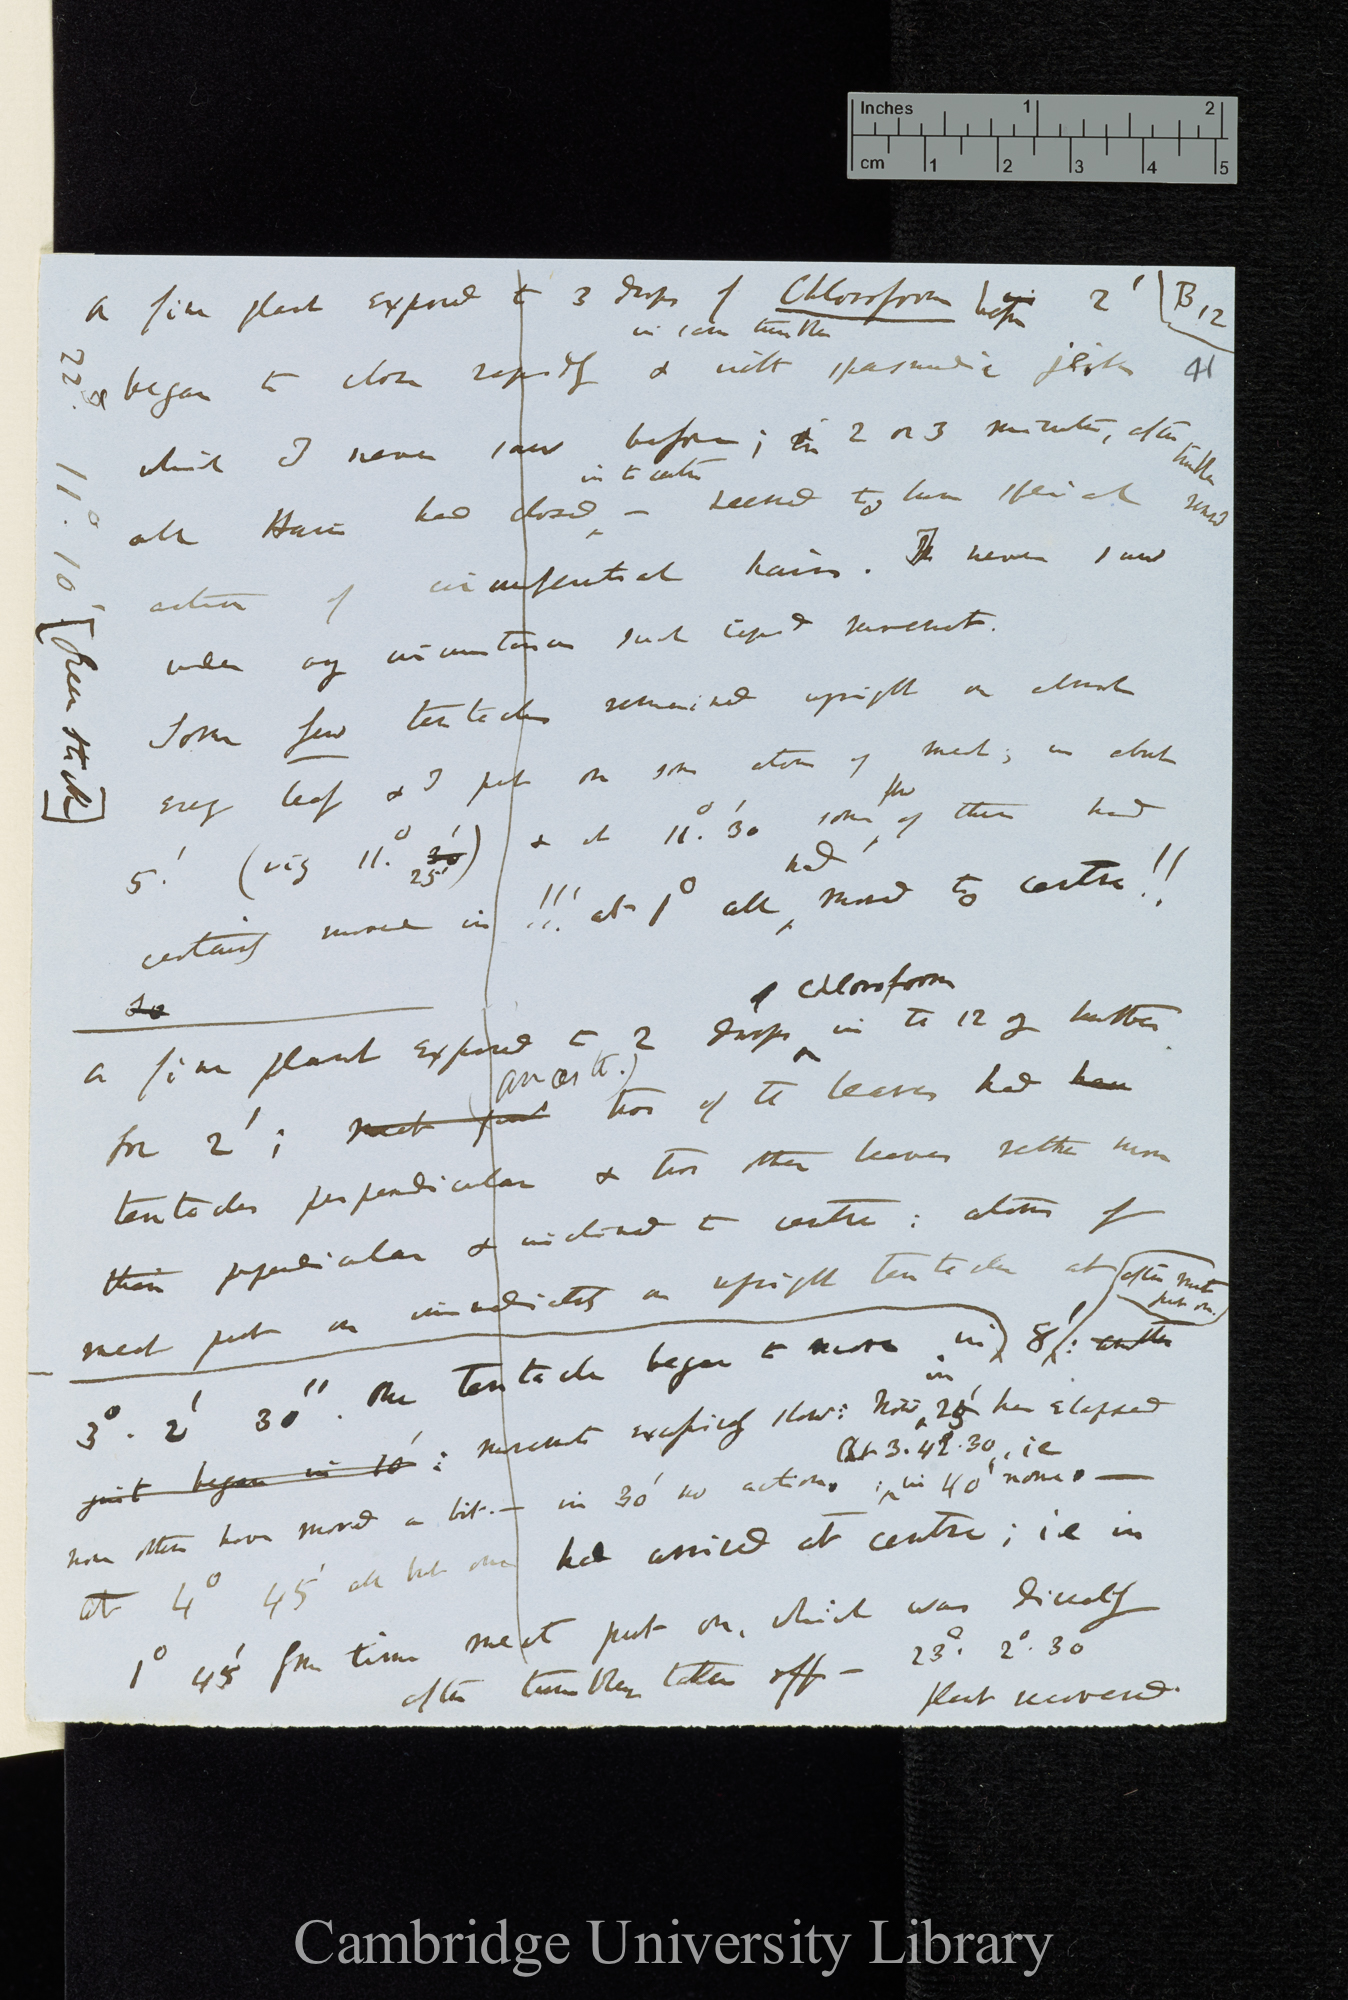 Inches 1 2
cm 1 2 3 4 5
B 12
41
a fine plant exposed to 3 drops of Chloroform 2'
in same tumbler
began to close rapidly & with spasmodic jerks
which I never saw before; in 2 or 3 minutes, after tumbler removed
in to centre
all Hairs had closed, — seemed to be special
action of circumferential hairs. I never saw
under any circumstances such rapid movement.
Some few tentacles remained upright on almost
every leaf & I put on some atoms of meat; in about
5'. (viz 11.° 30' 25') & at 11.° 30' some few of them had
certainly moved in !!! at 1° all had moved to centre!!
22d. 11.° 10'
a fine plant exposed to 2 drops of chloroform in the 12 oz bottle
for 2'; meat put two of the leaves had
tentacles perpendicular & two other leaves rather more
than perpendicular & inclined to centre: atoms of
meat put on immediately on upright tentacles at
after meat put on.
3°. 2' 30''. One tentacle began to move in 8': another
just began in 10': movement excessively slow: Now in 25' has elapsed
none others have moved a bit. — in 30' no action. At 3.42.30, ie in 40' none. —
at 4° 45' all but one had arrived at centre; ie in
1° 45' from time meat put on, which was directly
after tumbler taken off — 23d. 2°.30
plant recovered
Cambridge University Library